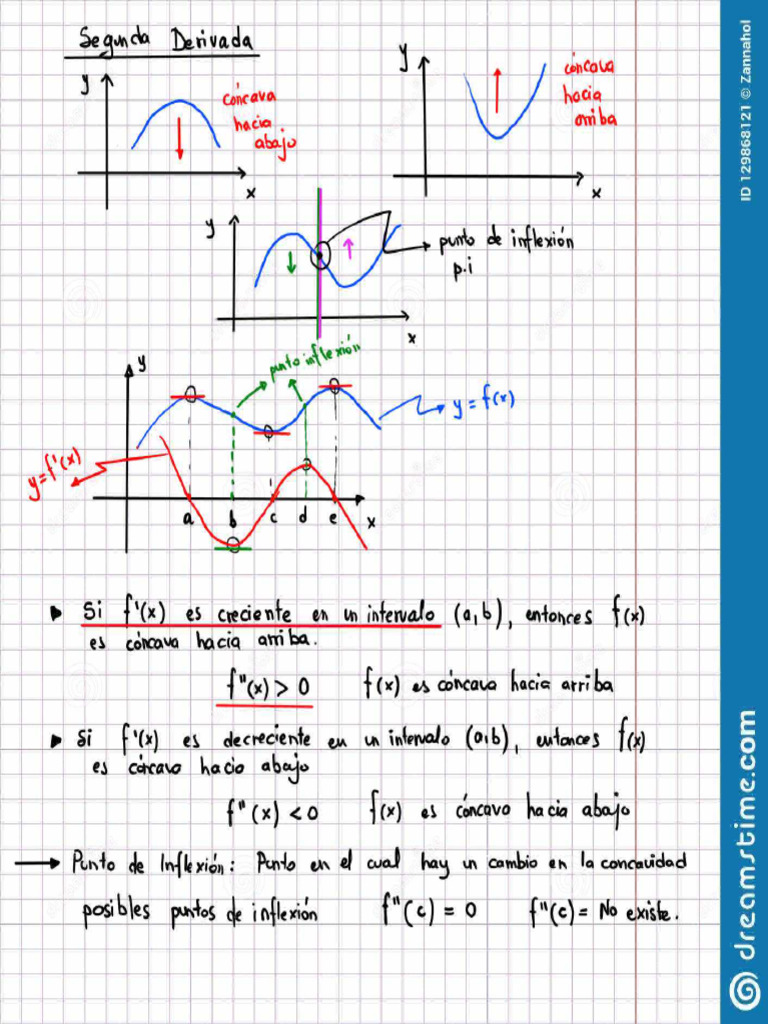 Segunda Derivada
y
cóncava
hacia
abajo
x
y
cóncava
hacia
arriba
x
y
punto de inflexión
p.i
x
y
punto inflexión
y = f(x)
y=f'(x)
a b c d e x
Si f'(x) es creciente en un intervalo (a,b), entonces f(x)
es cóncava hacia arriba.
f"(x) > 0 f(x) es cóncava hacia arriba
Si f'(x) es decreciente en un intervalo (a,b), entonces f(x)
es cóncavo hacia abajo
f"(x) < 0 f(x) es cóncavo hacia abajo
Punto de Inflexión: Punto en el cual hay un cambio en la concavidad
posibles puntos de inflexión f"(c) = 0 f"(c) = No existe.
ID 129868121 © Zannahol
dreamstime.com